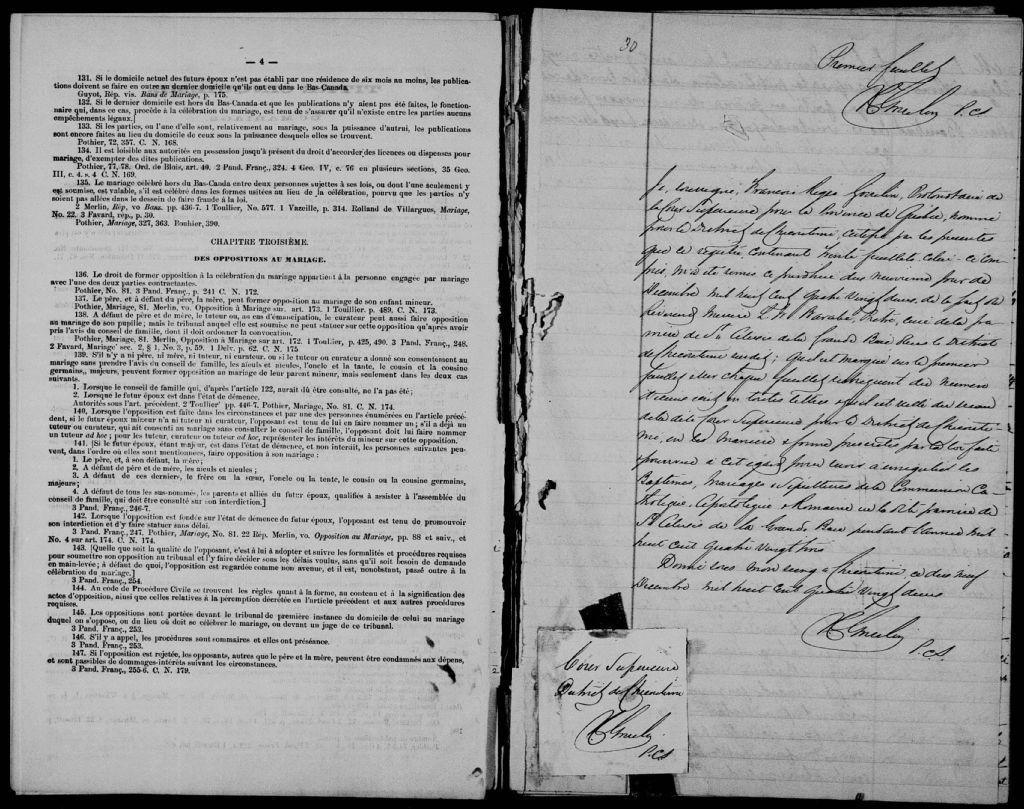 — 4 —
131. Si le domicile actuel des futurs époux n'est pas établi par une résidence de six mois au moins, les publica-
tions doivent se faire en outre au dernier domicile qu'ils ont eu dans le Bas-Canada.
Guyot, Rép. vis. Bans de Mariage, p. 175.
132. Si le dernier domicile est hors du Bas-Canada et que les publications n'y aient pas été faites, le fonction-
naire qui, dans ce cas, procède à la célébration du mariage, est tenu de s'assurer qu'il n'existe entre les parties aucuns
empêchements légaux.]
133. Si les parties, ou l'une d'elle sont, relativement au mariage, sous la puissance d'autrui, les publications
sont encore faites au lieu du domicile de ceux sous la puissance desquels elles se trouvent.
Pothier, 72, 357. C. N. 168.
134. Il est loisible aux autorités en possession jusqu'à présent du droit d'accorder des licences ou dispenses pour
mariage, d'exempter des dites publications.
Pothier, 77, 78. Ord. de Blois, art. 40. 2 Pand. Franç., 324. 4 Geo. IV, c. 76 en plusieurs sections, 35 Geo.
III, c. 4. s. 4 C. N. 169.
135. Le mariage célébré hors du Bas-Canda entre deux personnes sujettes à ses lois, ou dont l'une seulement y
est soumise, est valable, s'il est célébré dans les formes usitées au lieu de la célébration, pourvu que les parties n'y
soient pas allées dans le dessein de faire fraude à la loi.
2 Merlin, Rép. vo Bans. pp. 436-7. 1 Toullier, No. 577. 1 Vazeille, p. 314. Rolland de Villargues, Mariage,
No. 22. 3 Favard, rép., p. 30.
Pothier, Mariage, 327, 363. Bouhier, 390.
CHAPITRE TROISIÈME.
DES OPPOSITIONS AU MARIAGE.
136. Le droit de former opposition à la célébration du mariage appartient à la personne engagée par mariage
avec l'une des deux parties contractantes.
Pothier, No. 81. 3 Pand. Franç., p. 241 C. N. 172.
137. Le père, et à défaut du père, la mère, peut former opposition au mariage de son enfant mineur.
Pothier, Mariage, 81. Merlin, vo. Opposition à Mariage sur art. 173. 1 Touillier. p. 489. C. N. 173.
138. A défaut de père et de mère, le tuteur ou, au cas d'émancipation, le curateur peut aussi faire opposition
au mariage de son pupille ; mais le tribunal auquel elle est soumise ne peut statuer sur cette opposition qu'après avoir
pris l'avis du conseil de famille, dont il doit ordonner la convocation.
Pothier, Mariage, 81. Merlin, Opposition à Mariage sur art. 172. 1 Toullier, p. 425, 490. 3 Pand. Franç., 248.
2 Favard, Mariage' sec. 2, § 1, No. 3, p. 59. 1 Delv. p. 62. C. N. 175
139. S'il n'y a ni père, ni mère, ni tuteur, ni curateur, ou si le tuteur ou curateur a donné son consentement au
mariage sans prendre l'avis du conseil de famille, les aïeuls et aïeules, l'oncle et la tante, le cousin et la cousine
germains, majeurs, peuvent former opposition au mariage de leur parent mineur, mais seulement dans les deux cas
suivants.
1. Lorsque le conseil de famille qui, d'après l'article 122, aurait dû être consulté, ne l'a pas été ;
2. Lorsque le futur époux est dans l'état de démence.
Autorités sous l'art. précédent. 2 Toullier' pp. 446-7. Pothier, Mariage, No. 81. C. N. 174.
140. Lorsque l'opposition est faite dans les circonstances et par une des personnes énumérées en l'article précé-
dent, si le futur époux mineur n'a ni tuteur ni curateur, l'opposant est tenu de lui en faire nommer un ; s'il a déjà un
tuteur ou curateur, qui ait consenti au mariage sans consulter le conseil de famille, l'opposant doit lui faire nommer
un tuteur ad hoc ; pour les tuteur, curateur ou tuteur ad hoc, représenter les intérêts du mineur sur cette opposition.
141. [Si le futur époux, étant majeur, est dans l'état de démence, et non interdit, les personnes suivantes peu-
vent, dans l'ordre où elles sont mentionnées, faire opposition à son mariage :
1. Le père, et, à son défaut, la mère ;
2. A défaut de père et de mère, les aïeuls et aïeules ;
3. A défaut de ces derniers, le frère ou la sœur, l'oncle ou la tante, le cousin ou la cousine germains,
majeurs ;
4. A défaut de tous les sus-nommés, les parents et alliés du futur époux, qualifiés à assister à l'assemblée du
conseil de famille, qui doit être consulté sur son interdiction.]
3 Pand. Franç., 246-7.
142. Lorsque l'opposition est fondée sur l'état de démence du futur époux, l'opposant est tenu de promouvoir
son interdiction et d'y faire statuer sans délai.
3 Pand. Franç., 247. Pothier, Mariage, No. 81. 22 Rép. Merlin, vo. Opposition au Mariage, pp. 88 et suiv., et
No. 4 sur art. 174. C. N. 174.
143. [Quelle que soit la qualité de l'opposant, c'est à lui à adopter et suivre les formalités et procédures requises
pour soumettre son opposition au tribunal et l'y faire décider sous les délais voulus, sans qu'il soit besoin de demande
en main-levée ; à défaut de quoi, l'opposition est regardée comme non avenue, et il est, nonobstant, passé outre à la
célébration du mariage.]
3 Pand. Franç., 254.
144. Au code de Procédure Civile se trouvent les règles quant à la forme, au contenu et à la signification des
actes d'opposition, ainsi que celles relatives à la péremption décrétée en l'article précédent et aux autres procédures
requises.
145. Les oppositions sont portées devant le tribunal de première instance du domicile de celui au mariage
duquel on s'oppose, ou du lieu où doit se célébrer le mariage, ou devant un juge de ce tribunal.
3 Pand. Franç., 253.
146. S'il y a appel, les procédures sont sommaires et elles ont préséance.
3 Pand. Franç., 253.
147. Si l'opposition est rejetée, les opposants, autres que le père et la mère, peuvent être condamnés aux dépens,
et sont passibles de dommages-intérêts suivant les circonstances.
3 Pand. Franç., 255-6. C. N. 179.
30
Premier feuillet
P.C.S.
Je, soussigné, François Gosselin, Protonotaire de
la Cour Supérieure pour la Province de Québec, nommé
pour le District de Chicoutimi, certifie par les présentes
que ce registre contenant trente feuillets celui-ci com-
pris, m'a été remis ce jourd'hui neuvième jour de
Décembre mil huit cent quatre vingt deux, de la part de
Révérend Messire Prêtre, curé de la pa-
roisse de St Celesse de la Grande Baie dans le District
de Chicoutimi susdit ; qu'il est marqué sur le premier
feuillet et sur chaque feuillet subséquent du numéro
d'icelui en toutes lettres et qu'il est du sceau
de la dite Cour Supérieure pour le District de Chicouti-
mi, en la manière & forme prescrites par la loi faite
& pourvue à cet égard, pour servir à enregistrer les
Baptêmes, Mariages & Sépultures de la Communion Ca-
tholique, Apostolique & Romaine en la dite paroisse de
St de la Grande Baie pendant l'année mil
huit cent quatre vingt trois
Donné sous mon seing à Chicoutimi, ce dix neuf
Décembre mil huit cent quatre vingt deux
P.C.S.
Cour Supérieure
District de Chicoutimi
P.C.S.